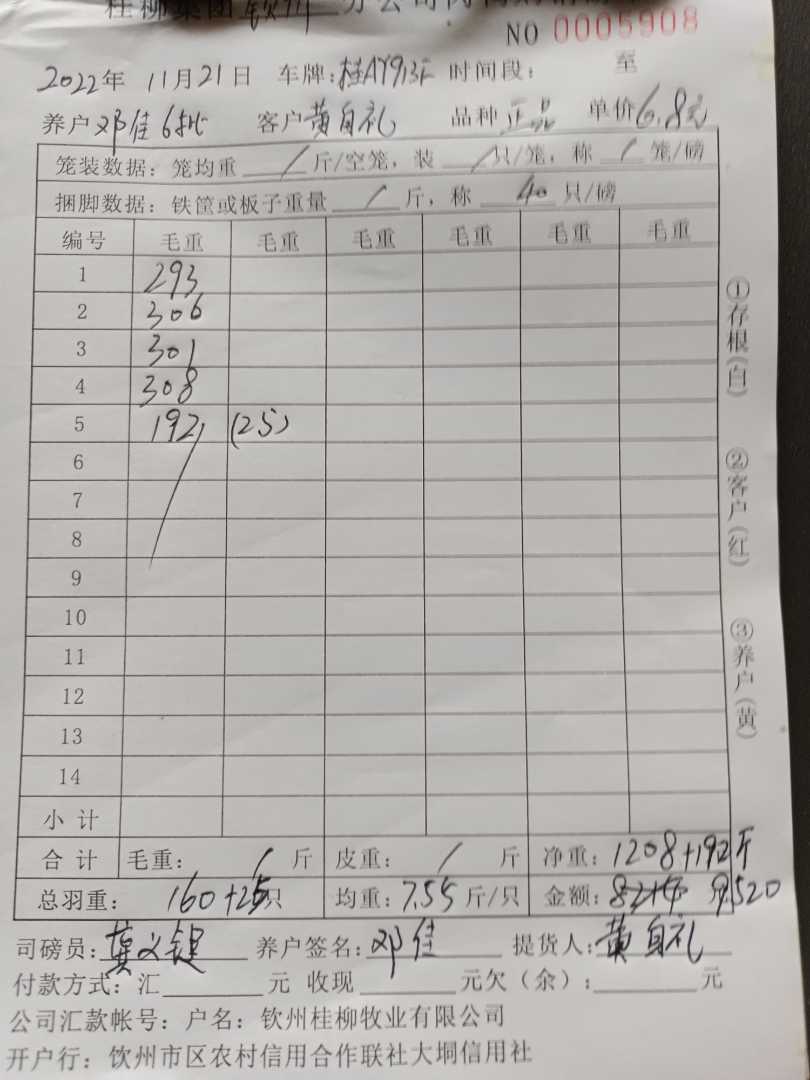 桂柳集团 钦州 分公司肉
NO 0005908
2022年 11月21日 车牌:桂AY913F 时间段: 至
养户 邓佳6批 客户 黄自礼 品种 正品 单价 6.8元
笼装数据: 笼均重 / 斤/空笼, 装 / 只/笼, 称 / 笼/磅
捆脚数据: 铁筐或板子重量 / 斤, 称 40 只/磅
编号 毛重 毛重 毛重 毛重 毛重 毛重
1 293
2 306
3 301
4 308
5 192 (25)
6
7
8
9
10
11
12
13
14
小计
合计 毛重: / 斤 皮重: / 斤 净重: 1208+192斤
总羽重: 160+25只 均重: 7.55斤/只 金额: 9520
司磅员: 养户签名: 邓佳 提货人: 黄自礼
付款方式: 汇 元 收现 元欠(余): 元
公司汇款帐号: 户名: 钦州桂柳牧业有限公司
开户行: 饮州市区农村信用合作联社大垌信用社
①存根(白) ②客户(红) ③养户(黄)